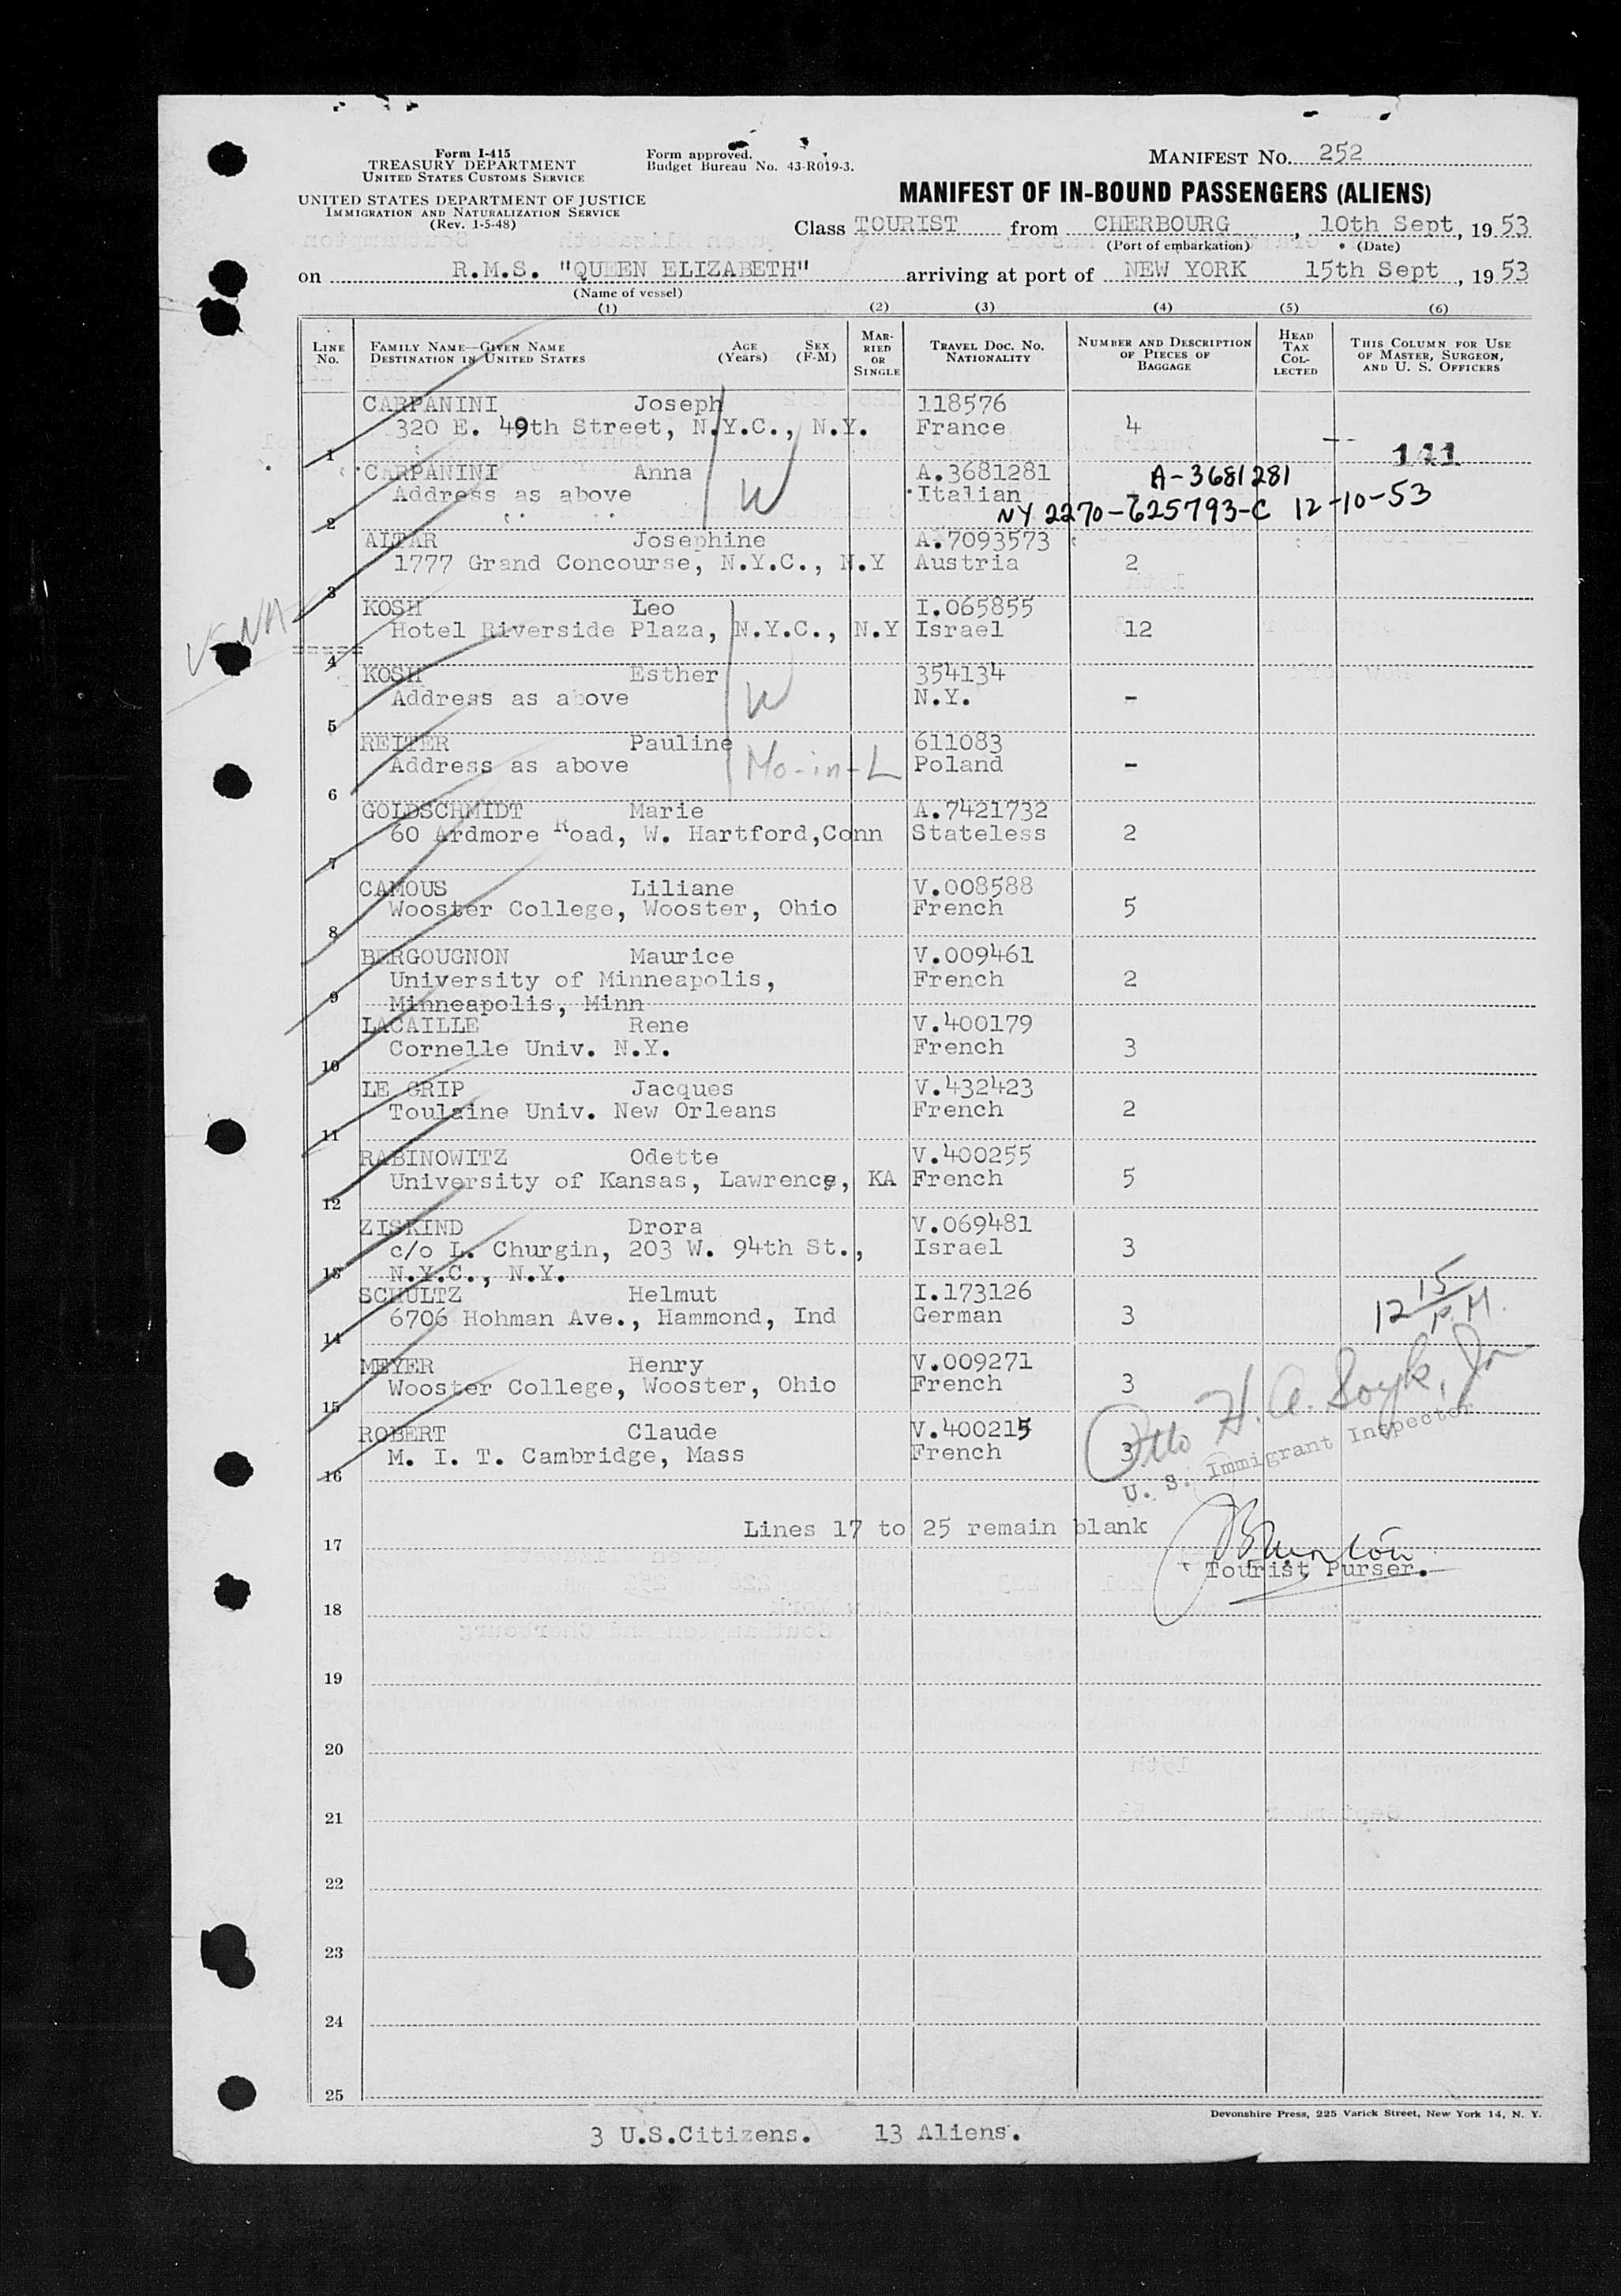 Form I-415
TREASURY DEPARTMENT
UNITED STATES CUSTOMS SERVICE
UNITED STATES DEPARTMENT OF JUSTICE
IMMIGRATION AND NATURALIZATION SERVICE
(Rev. 1-5-48)
Form approved.
Budget Bureau No. 43-R019-3.
MANIFEST NO. 252
MANIFEST OF IN-BOUND PASSENGERS (ALIENS)
Class TOURIST from CHERBOURG, 10th Sept, 1953
(Port of embarkation) (Date)
on R.M.S. "QUEEN ELIZABETH" arriving at port of NEW YORK 15th Sept, 1953
(Name of vessel)
(1) (2) (3) (4) (5) (6)
LINE No. FAMILY NAME—GIVEN NAME DESTINATION IN UNITED STATES AGE (Years) SEX (F-M) MARRIED OR SINGLE TRAVEL DOC. NO. NATIONALITY NUMBER AND DESCRIPTION OF PIECES OF BAGGAGE HEAD TAX COLLECTED THIS COLUMN FOR USE OF MASTER, SURGEON, AND U. S. OFFICERS
CARPANINI Joseph 118576
320 E. 49th Street, N.Y.C., N.Y. France 4
1 141
CARPANINI Anna A.3681281 A-3681281
Address as above W Italian
2 NY 2270-625793-C 12-10-53
ALTAR Josephine A.7093573
1777 Grand Concourse, N.Y.C., N.Y Austria 2
3
KOSH Leo I.065855
Hotel Riverside Plaza, N.Y.C., N.Y Israel 12
4
KOSH Esther 354134
Address as above W N.Y. -
5
REITER Pauline 611083
Address as above Mo-in-L Poland -
6
GOLDSCHMIDT Marie A.7421732
60 Ardmore Road, W. Hartford,Conn Stateless 2
7
CAMOUS Liliane V.008588
Wooster College, Wooster, Ohio French 5
8
BERGOUGNON Maurice V.009461
University of Minneapolis, French 2
9 Minneapolis, Minn
LACAILLE Rene V.400179
Cornelle Univ. N.Y. French 3
10
LE GRIP Jacques V.432423
Toulaine Univ. New Orleans French 2
11
RABINOWITZ Odette V.400255
University of Kansas, Lawrence, KA French 5
12
ZISKIND Drora V.069481
c/o L. Churgin, 203 W. 94th St., Israel 3
13 N.Y.C., N.Y.
SCHULTZ Helmut I.173126
6706 Hohman Ave., Hammond, Ind German 3 12 15 P.M.
14
MEYER Henry V.009271
Wooster College, Wooster, Ohio French 3
15 Otto H. A. Soyk, Jr
ROBERT Claude V.400215
M. I. T. Cambridge, Mass French 3
16 U. S. Immigrant Inspector
Lines 17 to 25 remain blank
17
Tourist Purser.
18
19
20
21
22
23
24
25
Devonshire Press, 225 Varick Street, New York 14, N. Y.
3 U.S.Citizens. 13 Aliens.